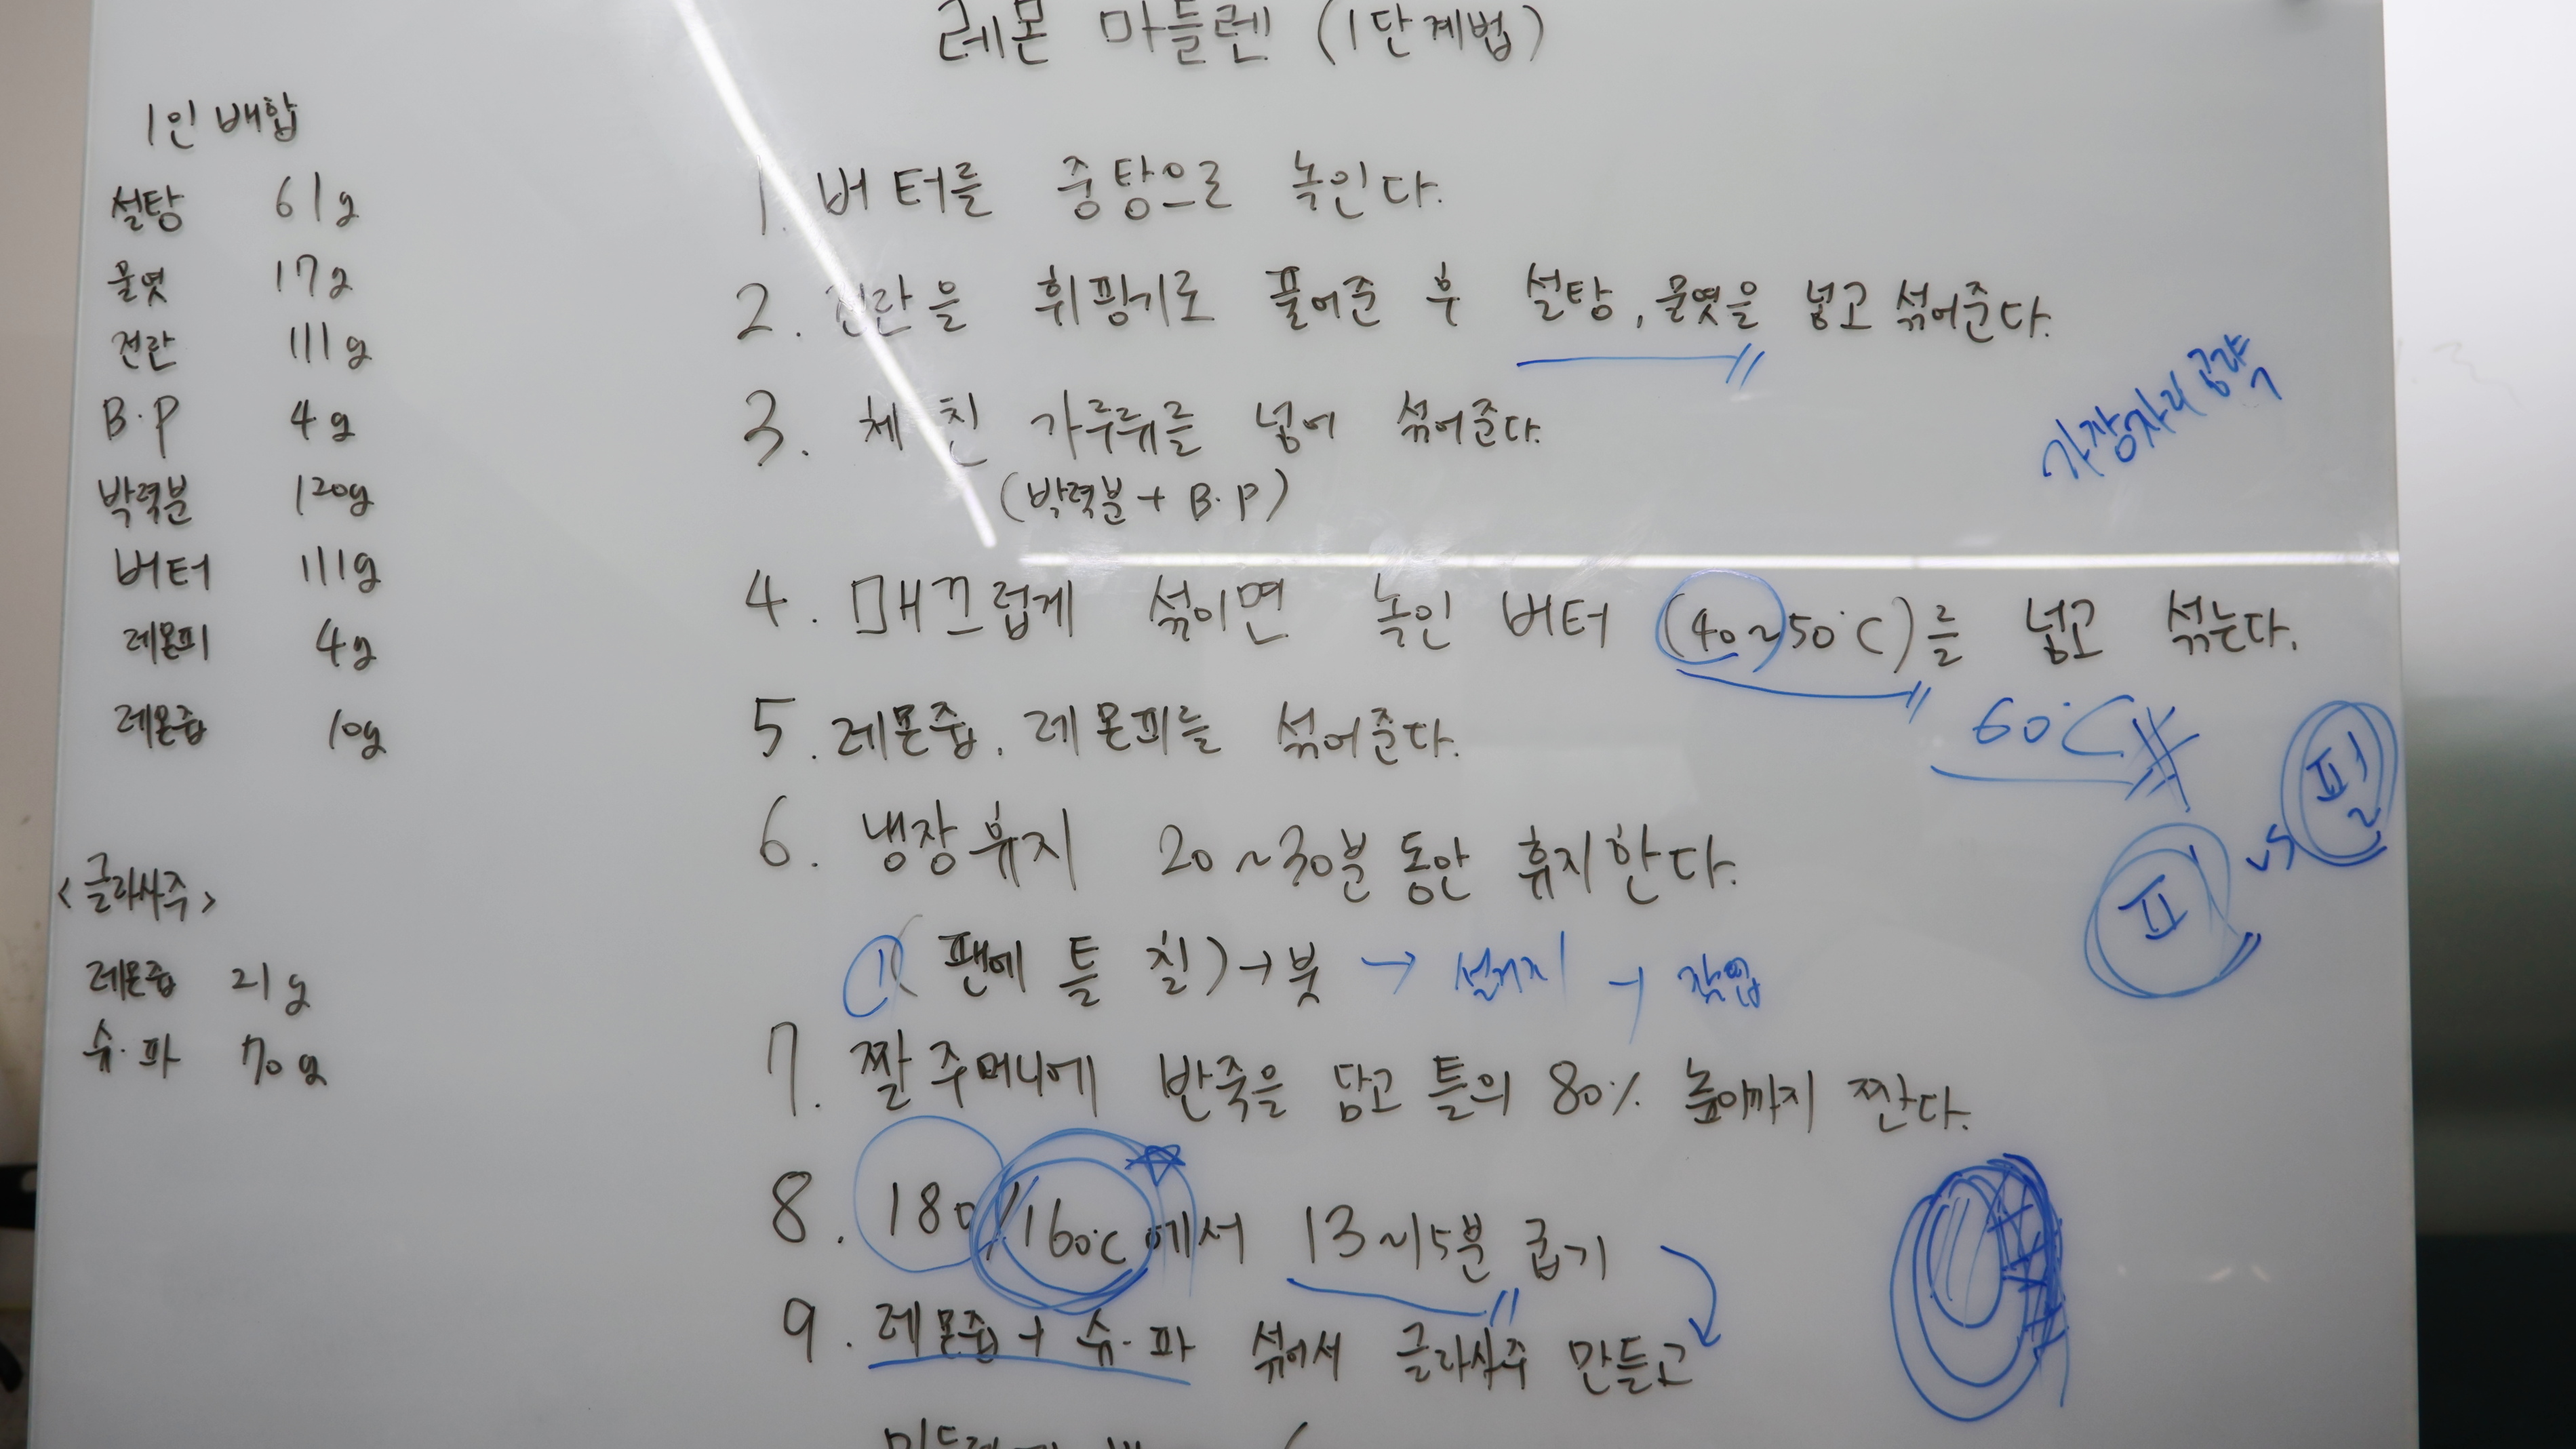 레몬 마들렌 (1단계법)
1인 배합
설탕 61g
물엿 17g
전란 111g
B.P 4g
박력분 120g
버터 111g
레몬피 4g
레몬즙 10g
<글라사주>
레몬즙 21g
슈.파 70g
1. 버터를 중탕으로 녹인다.
2. 전란을 휘핑기로 풀어준 후 설탕, 물엿을 넣고 섞어준다.
3. 체 친 가루류를 넣어 섞어준다.
(박력분 + B.P)
가장자리 공략
4. 매끄럽게 섞이면 녹인 버터 (40~50°C)를 넣고 섞는다.
60°C
5. 레몬즙, 레몬피를 섞어준다.
피 vs 필
6. 냉장휴지 20~30분 동안 휴지한다.
① (팬에 틀 칠) → 붓 → 설거지 → 작업
7. 짤주머니에 반죽을 담고 틀의 80% 높이까지 짠다.
8. 180/160°C에서 13~15분 굽기
9. 레몬즙 + 슈.파 섞어서 글라사주 만들고